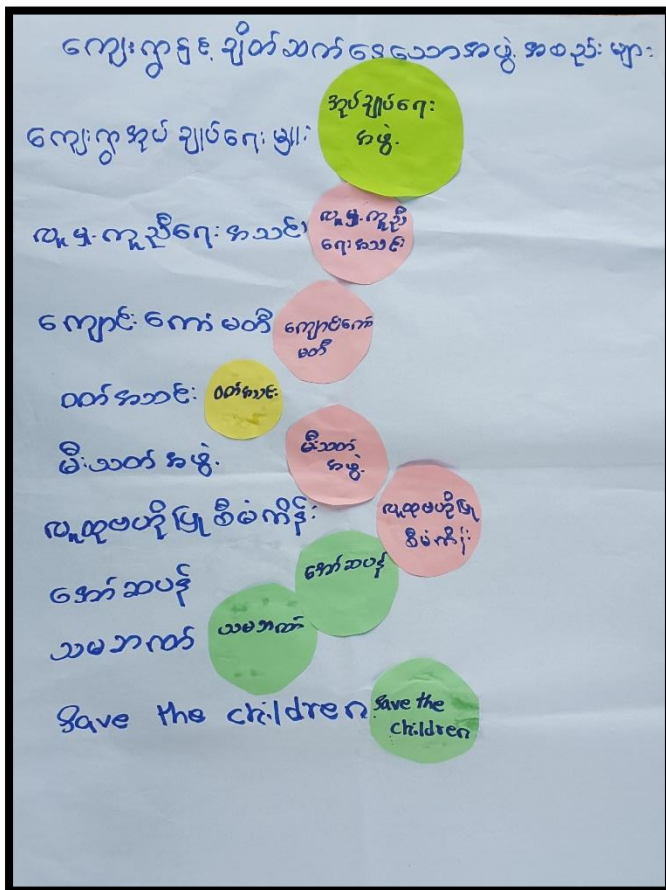 ကျေးရွာနှင့် ချိတ်ဆက်နေသောအဖွဲ့အစည်းများ
ကျေးရွာအုပ်ချုပ်ရေးမှူး
အုပ်ချုပ်ရေး
အဖွဲ့
လူမှုကူညီရေးအသင်း
လူမှုကူညီ
ရေးအသင်း
ကျောင်းကော်မတီ
ကျောင်းကော်
မတီ
ဝတ်အသင်း
ဝတ်အသင်း
မီးသတ်အဖွဲ့
မီးသတ်
အဖွဲ့
လူထုဗဟိုပြုစီမံကိန်း
လူထုဗဟိုပြု
စီမံကိန်း
အော်ဆပန်
အော်ဆပန်
သမဘဏ်
သမဘဏ်
Save the children
Save the
children